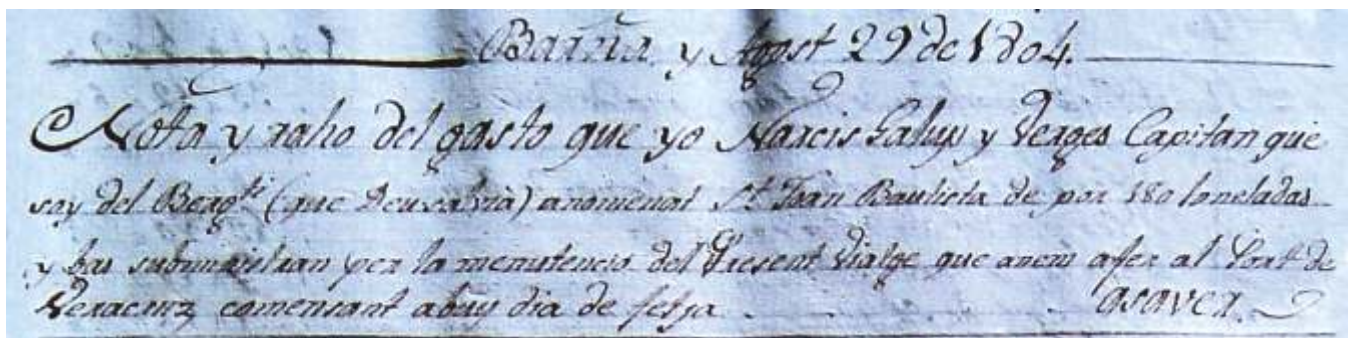 Barña y Agost 29 de 1804.
Nota y raho del gasto que yo Narcis y Verges Capitan que
soy del Berg.ti (que Deu salvia) anomenat S.t Joan Bautista de por 180 toneladas
y bas subministran per la menutencio del Present Viatge que anem afer al Port de
Veracruz comensant abuy dia de fetja asaver.